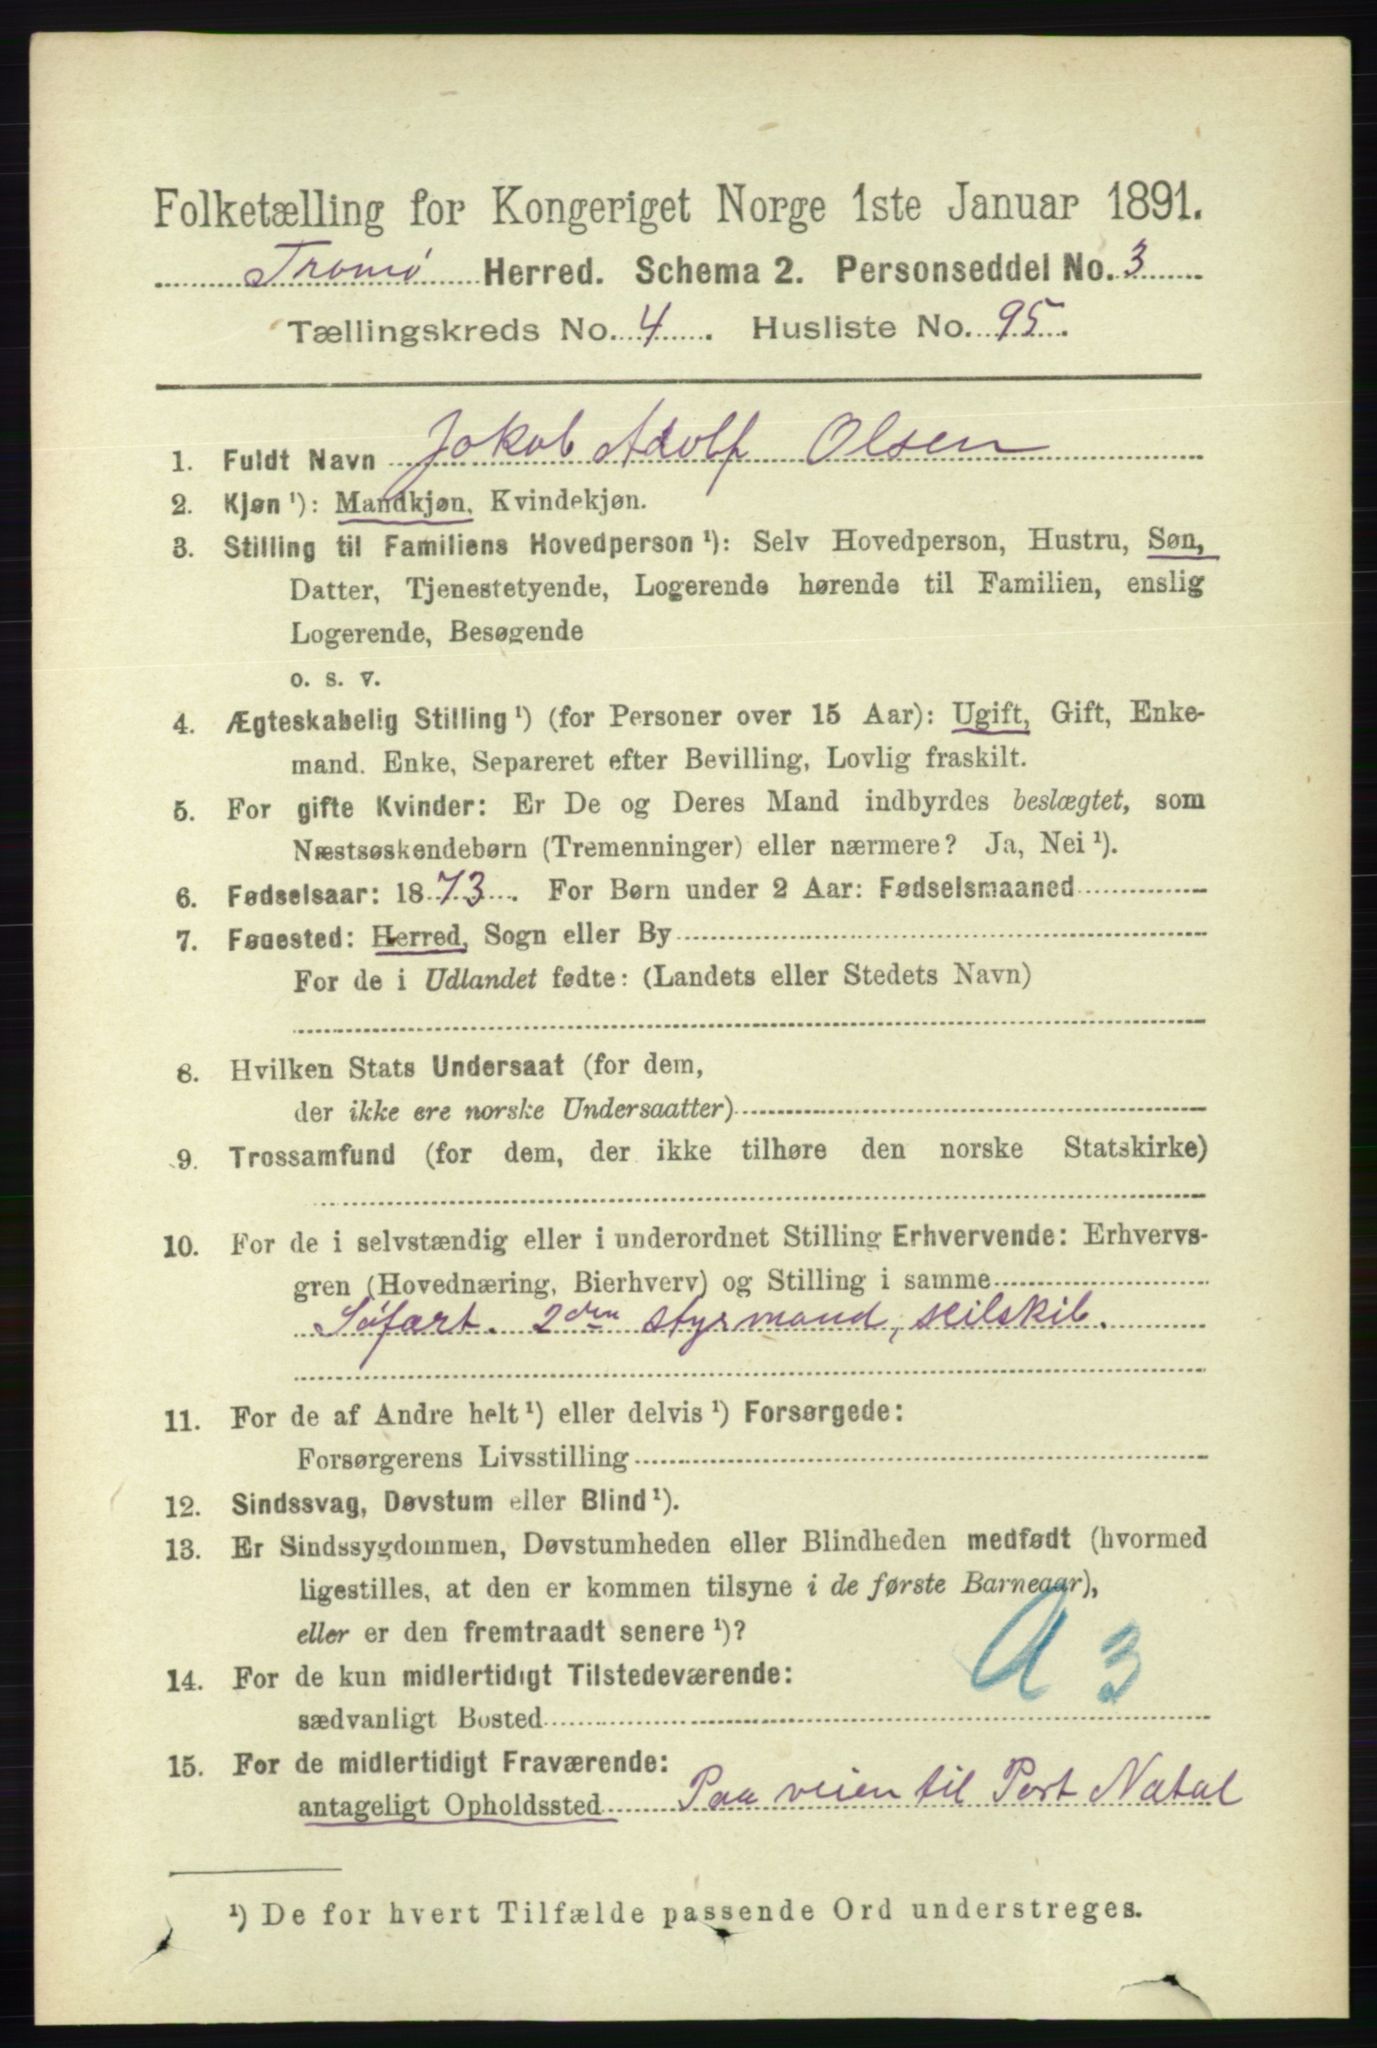 Folketælling for Kongeriget Norge 1ste Januar 1891.
Tromø Herred. Schema 2. Personseddel No. 3
Tællingskreds No. 4. Husliste No. 95.
1. Fuldt Navn Jokob Adolf Olsen
2. Kjøn ¹): Mandkjøn, Kvindekjøn.
3. Stilling til Familiens Hovedperson ¹): Selv Hovedperson, Hustru, Søn,
Datter, Tjenestetyende, Logerende hørende til Familien, enslig
Logerende, Besøgende
o. s. v.
4. Ægteskabelig Stilling ¹) (for Personer over 15 Aar): Ugift, Gift, Enke-
mand. Enke, Separeret efter Bevilling, Lovlig fraskilt.
5. For gifte Kvinder: Er De og Deres Mand indbyrdes beslægtet, som
Næstsøskendebørn (Tremenninger) eller nærmere? Ja, Nei ¹).
6. Fødselsaar: 1873. For Børn under 2 Aar: Fødselsmaaned
7. Fødested: Herred, Sogn eller By
For de i Udlandet fødte: (Landets eller Stedets Navn)
8. Hvilken Stats Undersaat (for dem,
der ikke ere norske Undersaatter)
9. Trossamfund (for dem, der ikke tilhøre den norske Statskirke)
10. For de i selvstændig eller i underordnet Stilling Erhvervende: Erhvervs-
gren (Hovednæring, Bierhverv) og Stilling i samme
Søfart. 2den styrmand, seilskib.
11. For de af Andre helt ¹) eller delvis ¹) Forsørgede:
Forsørgerens Livsstilling
12. Sindssvag, Døvstum eller Blind ¹).
13. Er Sindssygdommen, Døvstumheden eller Blindheden medfødt (hvormed
ligestilles, at den er kommen tilsyne i de første Barneaar),
eller er den fremtraadt senere ¹)?
A 3
14. For de kun midlertidigt Tilstedeværende:
sædvanligt Bosted
15. For de midlertidigt Fraværende:
antageligt Opholdssted Paa veien til Port Natal
¹) De for hvert Tilfælde passende Ord understreges.